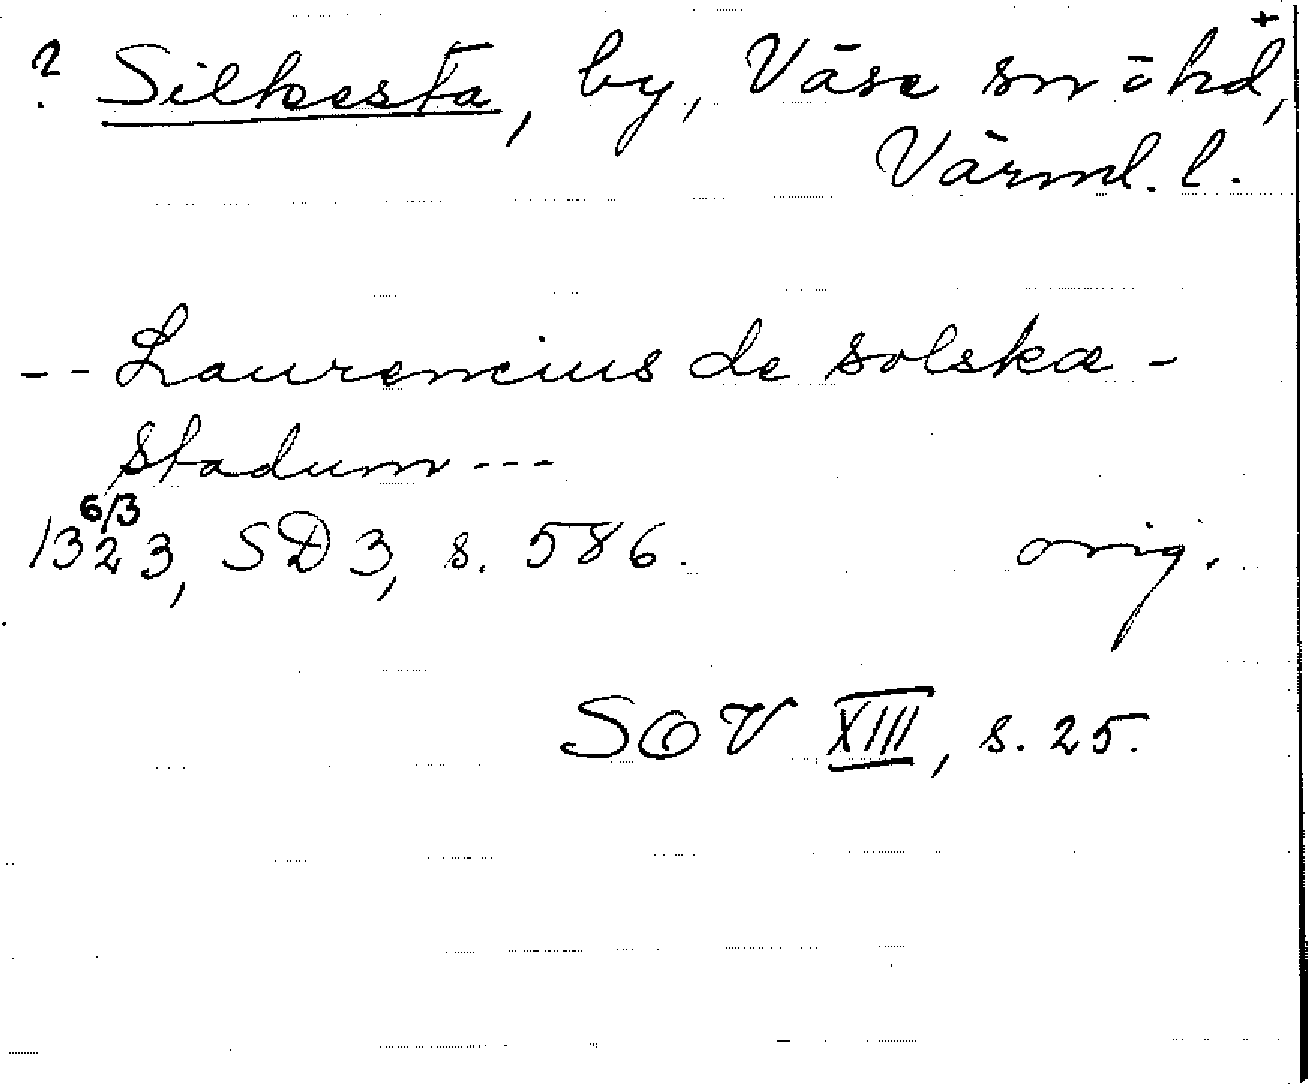 ? Silkesta, by, Väse sn o hd, +
Värml. l.
-- Laurencius de solskæ-
stadum ---
6/3
1323, SD 3, s. 586. orig.
SOV XIII, s. 25.